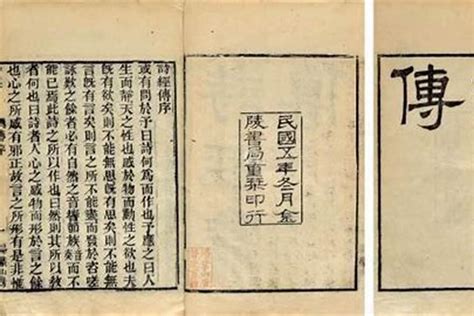 傳
民國五年冬月金
陵書局重栞印行
詩經傳序
或有問於予曰詩何爲而作也予應之曰人
生而靜天之性也感於物而動性之欲也夫
旣有欲矣則不能無思旣有思矣則不能無
言旣有言矣則言之所不能盡而發於咨嗟
詠歎之餘者必有自然之音響節族音而不
能已焉此詩之所以作也曰然則其所以敎
者何也曰詩者人心之感物而形於言之餘
也心之所感有邪正故言之所形有是非惟